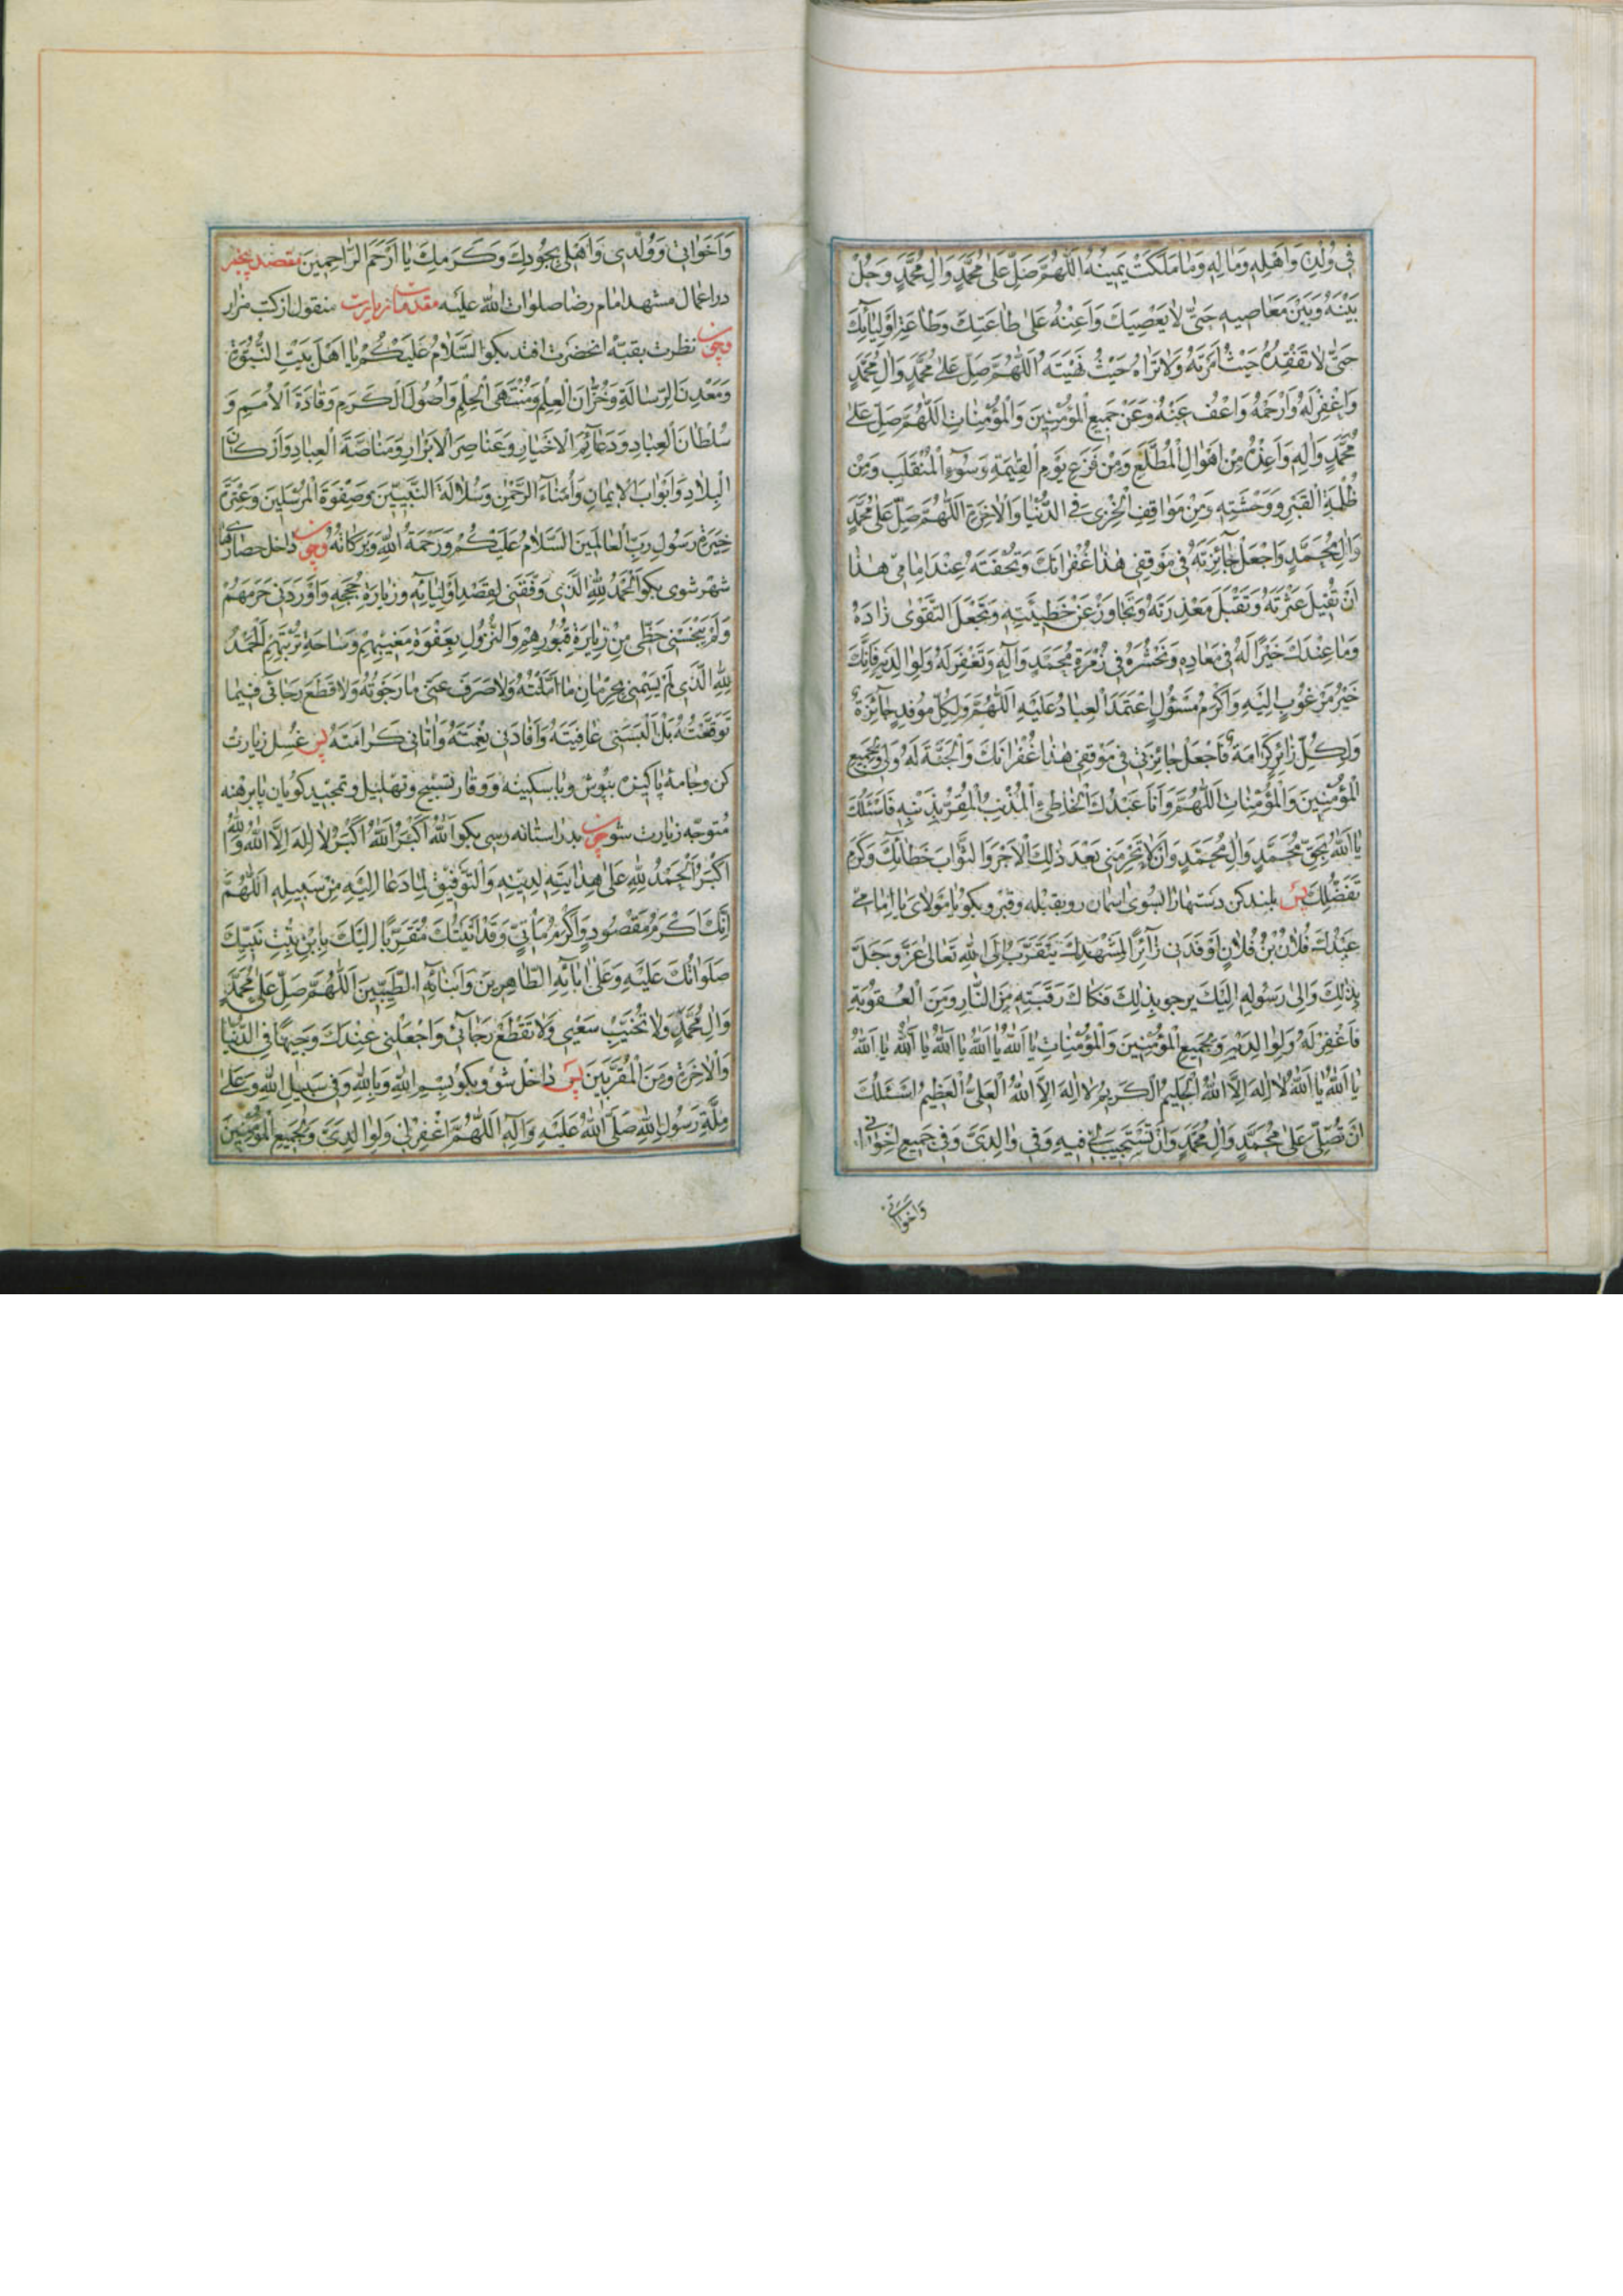 فِي وُلْدِهِ وَاَهْلِهِ وَمَالِهِ وَمَا مَلَكَتْ يَمِينُهُ اَللّٰهُمَّ صَلِّ عَلٰى مُحَمَّدٍ وَاٰلِ مُحَمَّدٍ وَحُلْ
بَيْنَهُ وَبَيْنَ مَعَاصِيهِ حَتّٰى لَا يَعْصِيَكَ وَاَعِنْهُ عَلٰى طَاعَتِكَ وَطَاعَةِ اَوْلِيَائِكَ
حَتّٰى لَا تَفْقِدَهُ حَيْثُ اَمَرْتَهُ وَلَا تَرَاهُ حَيْثُ نَهَيْتَهُ اَللّٰهُمَّ صَلِّ عَلٰى مُحَمَّدٍ وَاٰلِ مُحَمَّدٍ
وَاغْفِرْ لَهُ وَارْحَمْهُ وَاعْفُ عَنْهُ وَعَنْ جَمِيعِ الْمُؤْمِنِينَ وَالْمُؤْمِنَاتِ اَللّٰهُمَّ صَلِّ عَلٰى
مُحَمَّدٍ وَاٰلِهِ وَاَعِذْهُ مِنْ اَهْوَالِ الْمُطَّلَعِ وَمِنْ فَزَعِ يَوْمِ الْقِيٰمَةِ وَسُوۤءِ الْمُنْقَلَبِ وَمِنْ
ظُلْمَةِ الْقَبْرِ وَوَحْشَتِهِ وَمِنْ مَوَاقِفِ الْخِزْيِ فِي الدُّنْيَا وَالْاٰخِرَةِ اَللّٰهُمَّ صَلِّ عَلٰى مُحَمَّدٍ
وَاٰلِ مُحَمَّدٍ وَاجْعَلْ جَائِزَتَهُ فِي مَوْقِفِي هٰذَا غُفْرَانَكَ وَتُحْفَتَهُ عِنْدَ اِمَامِي هٰذَا
اَنْ تُقِيلَ عَثْرَتَهُ وَتَقْبَلَ مَعْذِرَتَهُ وَتَجَاوَزْ عَنْ خَطِيئَتِهِ وَتَجْعَلَ التَّقْوٰى زَادَهُ
وَمَا عِنْدَكَ خَيْرًا لَهُ فِي مَعَادِهِ وَتَحْشُرَهُ فِي زُمْرَةِ مُحَمَّدٍ وَاٰلِهِ وَتَغْفِرَ لَهُ وَلِوَالِدَيْهِ فَاِنَّكَ
خَيْرُ مَرْغُوبٍ اِلَيْهِ وَاَكْرَمُ مَسْئُولٍ اعْتَمَدَ الْعِبَادُ عَلَيْهِ اَللّٰهُمَّ وَلِكُلِّ مُوفِدٍ جَائِزَةٌ
وَلِكُلِّ زَائِرٍ كَرَامَةٌ فَاجْعَلْ جَائِزَتِي فِي مَوْقِفِي هٰذَا غُفْرَانَكَ وَالْجَنَّةَ لَهُ وَلِي وَلِجَمِيعِ
الْمُؤْمِنِينَ وَالْمُؤْمِنَاتِ اَللّٰهُمَّ وَاَنَا عَبْدُكَ الْخَاطِئُ الْمُذْنِبُ الْمُقِرُّ بِذَنْبِهِ فَاَسْئَلُكَ
يَا اَللّٰهُ بِحَقِّ مُحَمَّدٍ وَاٰلِ مُحَمَّدٍ وَاَنْ لَا تَحْرِمَنِي بَعْدَ ذٰلِكَ الْاَجْرَ وَالثَّوَابَ خَطَائِكَ وَكَرَمِ
تَفَضُّلِكَ پس بلند کن دستهارا بسوی اسمان رو بقبله وقبر و بکو يَا مَوْلَايَ يَا اِمَامِي
عَبْدُكَ فُلَانُ بْنُ فُلَانٍ اَوْفَدَنِي زَائِرًا لِمَشْهَدِكَ يَتَقَرَّبُ اِلَى اللّٰهِ تَعَالٰى عَزَّ وَجَلَّ
بِذٰلِكَ وَاِلٰى رَسُولِهِ اِلَيْكَ يَرْجُو بِذٰلِكَ فَكَاكَ رَقَبَتِهِ مِنَ النَّارِ وَمِنَ الْعُقُوبَةِ
فَاغْفِرْ لَهُ وَلِوَالِدَيْهِ وَلِجَمِيعِ الْمُؤْمِنِينَ وَالْمُؤْمِنَاتِ يَا اَللّٰهُ يَا اَللّٰهُ يَا اَللّٰهُ يَا اَللّٰهُ يَا اَللّٰهُ
يَا اَللّٰهُ يَا اَللّٰهُ لَا اِلٰهَ اِلَّا اللّٰهُ الْحَلِيمُ الْكَرِيمُ لَا اِلٰهَ اِلَّا اللّٰهُ الْعَلِيُّ الْعَظِيمُ اَسْئَلُكَ
اَنْ تُصَلِّيَ عَلٰى مُحَمَّدٍ وَاٰلِ مُحَمَّدٍ وَاَنْ تَسْتَجِيبَ لِي فِيهِ وَفِي وَالِدَيَّ وَفِي جَمِيعِ اِخْوَانِي
وَاَخَوَاتِي
وَاَخَوَاتِي وَوُلْدِي وَاَهْلِي بِجُودِكَ وَكَرَمِكَ يَا اَرْحَمَ الرَّاحِمِينَ مقصد پنجم
در اعمال مشهد امام رضا صلوات الله عليه مقدمات زیارت منقول از کتب مزار
وچون نظرت بقبّه انحضرت افتد بکو اَلسَّلَامُ عَلَيْكُمْ يَا اَهْلَ بَيْتِ النُّبُوَّةِ
وَمَعْدِنَ الرِّسَالَةِ وَخُزَّانَ الْعِلْمِ وَمُنْتَهَى الْحِلْمِ وَاُصُولَ الْكَرَمِ وَقَادَةَ الْاُمَمِ وَ
سُلْطَانَ الْعِبَادِ وَدَعَائِمَ الْاَخْيَارِ وَعَنَاصِرَ الْاَبْرَارِ وَمَنَاصَّةَ الْعِبَادِ وَاَرْكَانَ
الْبِلَادِ وَاَبْوَابَ الْاِيمَانِ وَاُمَنَاءَ الرَّحْمٰنِ وَسُلَالَةَ النَّبِيِّينَ وَصَفْوَةَ الْمُرْسَلِينَ وَعِتْرَةَ
خِيَرَةِ رَسُولِ رَبِّ الْعَالَمِينَ اَلسَّلَامُ عَلَيْكُمْ وَرَحْمَةُ اللّٰهِ وَبَرَكَاتُهُ وچون داخل حصارهای
شهر شوی بکو اَلْحَمْدُ لِلّٰهِ الَّذِي وَفَّقَنِي لِقَصْدِ اَوْلِيَائِهِ وَزِيَارَةِ حُجَجِهِ وَاَوْرَدَنِي حَرَمَهُمْ
وَلَمْ يَبْخَسْنِي حَظِّي مِنْ زِيَارَةِ قُبُورِهِمْ وَالنُّزُولِ بِعَفْوَةِ مَغِيبِهِمْ وَسَاحَةِ تُرْبَتِهِمْ اَلْحَمْدُ
لِلّٰهِ الَّذِي لَمْ يَسِمْنِي بِحِرْمَانِ مَا اَمَّلْتُهُ وَلَا صَرَفَ عَنِّي مَا رَجَوْتُهُ وَلَا قَطَعَ رَجَائِي فِيمَا
تَوَقَّعْتُهُ بَلْ اَلْبَسَنِي عَافِيَتَهُ وَاَفَادَنِي نِعْمَتَهُ وَاٰتَانِي كَرَامَتَهُ پس غسل زیارت
کن وجامهٔ پاکیزه بپوش وبا سکینه ووقار تسبیح وتهلیل وتمجید کویان پابرهنه
متوجّه زیارت شو چون بدر استانه رسی بکو اَللّٰهُ اَكْبَرُ اَللّٰهُ اَكْبَرُ لَا اِلٰهَ اِلَّا اللّٰهُ وَاللّٰهُ
اَكْبَرُ اَلْحَمْدُ لِلّٰهِ عَلٰى هِدَايَتِهِ لِدِينِهِ وَالتَّوْفِيقِ لِمَا دَعَا اِلَيْهِ مِنْ سَبِيلِهِ اَللّٰهُمَّ
اِنَّكَ اَكْرَمُ مَقْصُودٍ وَاَكْرَمُ مَأْتِيٍّ وَقَدْ اَتَيْتُكَ مُتَقَرِّبًا اِلَيْكَ بِابْنِ بِنْتِ نَبِيِّكَ
صَلَوَاتُكَ عَلَيْهِ وَعَلٰى اٰبَائِهِ الطَّاهِرِينَ وَاَبْنَائِهِ الطَّيِّبِينَ اَللّٰهُمَّ صَلِّ عَلٰى مُحَمَّدٍ
وَاٰلِ مُحَمَّدٍ وَلَا تُخَيِّبْ سَعْيِي وَلَا تَقْطَعْ رَجَائِي وَاجْعَلْنِي عِنْدَكَ وَجِيهًا فِي الدُّنْيَا
وَالْاٰخِرَةِ وَمِنَ الْمُقَرَّبِينَ پس داخل شو وبکو بِسْمِ اللّٰهِ وَبِاللّٰهِ وَفِي سَبِيلِ اللّٰهِ وَعَلٰى
مِلَّةِ رَسُولِ اللّٰهِ صَلَّى اللّٰهُ عَلَيْهِ وَاٰلِهِ اَللّٰهُمَّ اغْفِرْ لِي وَلِوَالِدَيَّ وَلِجَمِيعِ الْمُؤْمِنِينَ